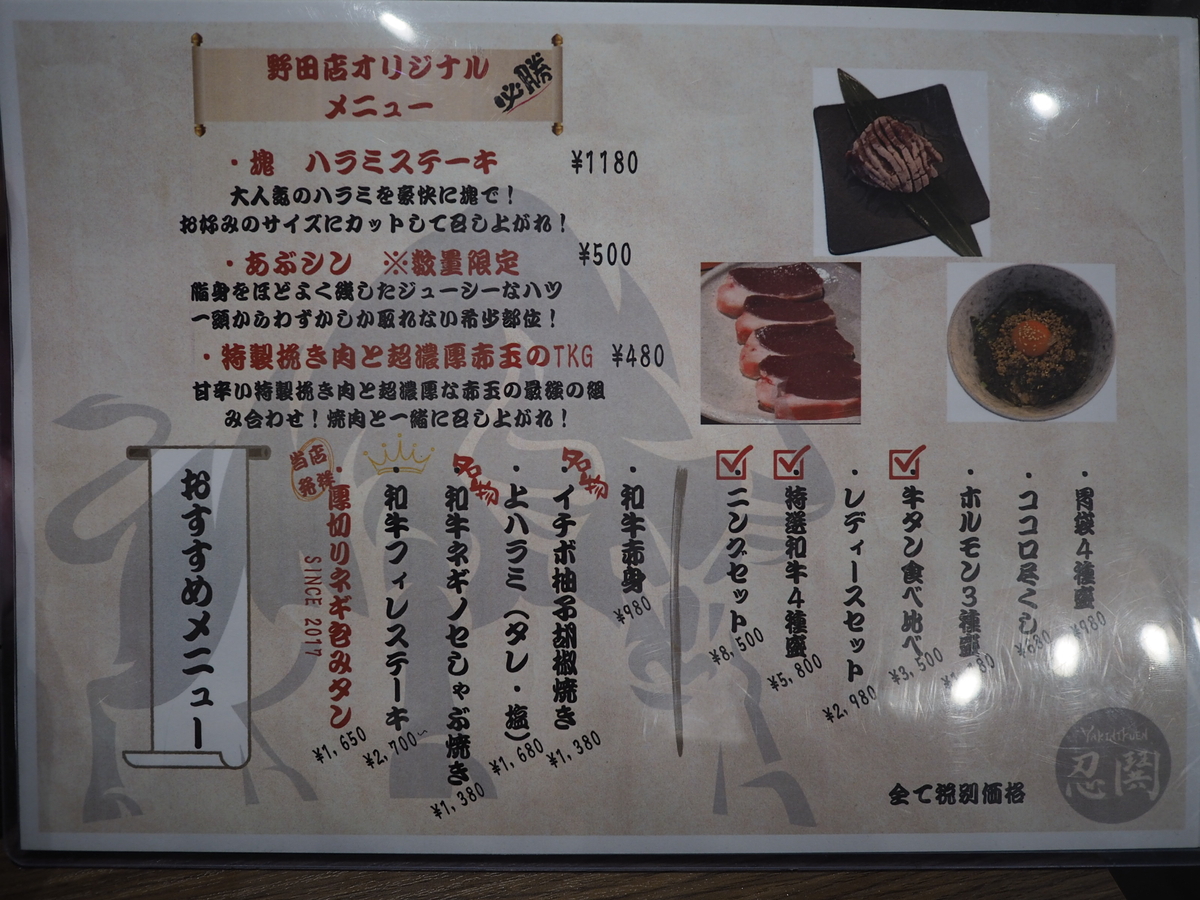 野田店オリジナル
メニュー
必勝
・塊 ハラミステーキ ¥1180
大人気のハラミを豪快に塊で！
お好みのサイズにカットして召し上がれ！
・あぶシン ※数量限定 ¥500
脂身をほどよく残したジューシーなハツ
一頭からわずかしか取れない希少部位！
・特製挽き肉と超濃厚赤玉のTKG ¥480
甘辛い特製挽き肉と超濃厚な赤玉の最強の組
み合わせ！焼肉と一緒に召し上がれ！
おすすめメニュー
当店発祥
・厚切りネギ包みタン ¥1,650
SINCE 2017
・和牛フィレステーキ ¥2,700~
・和牛ネギノセしゃぶ焼き ¥1,380
名物
・上ハラミ（タレ・塩） ¥1,680
・イチボ柚子胡椒焼き ¥1,380
名物
・和牛赤身 ¥980
・ニングセット ¥8,500
・特選和牛4種盛 ¥5,800
・レディースセット ¥2,980
・牛タン食べ比べ ¥3,500
・ホルモン3種盛
・ココロ尽くし ¥980
・胃袋4種盛 ¥980
全て税別価格
YAKINIKUEN
忍闘